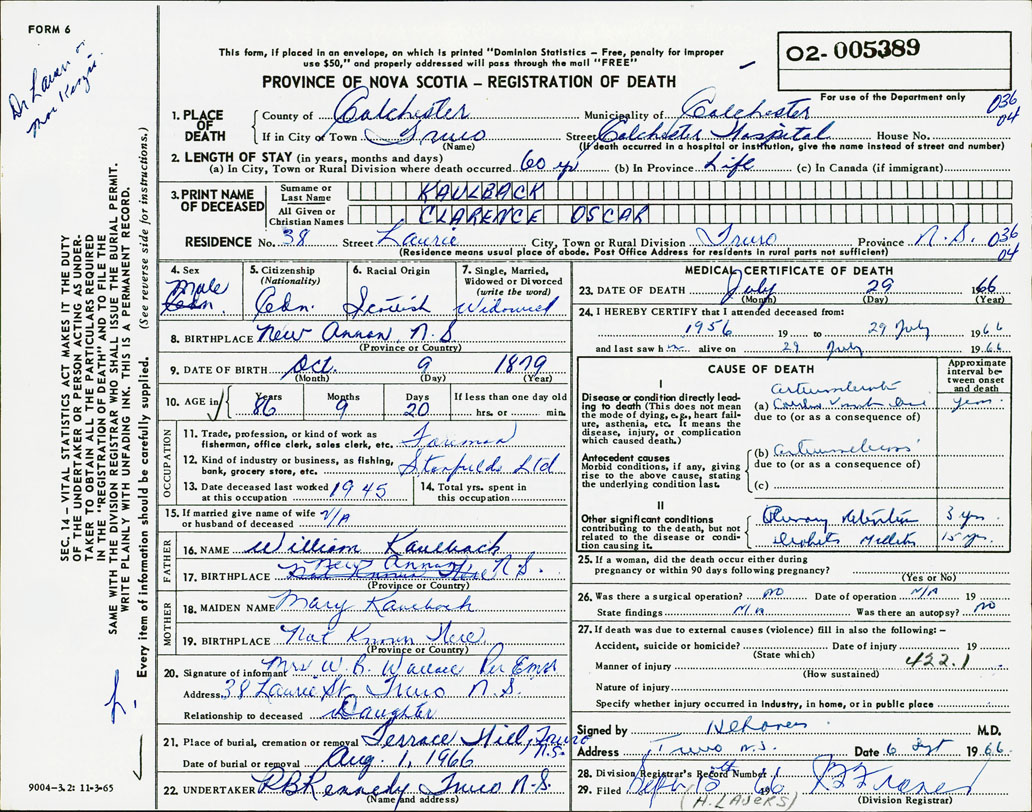 FORM 6
This form, if placed in an envelope, on which is printed "Dominion Statistics – Free, penalty for improper
use $50," and properly addressed will pass through the mail "FREE"
02-005389
PROVINCE OF NOVA SCOTIA – REGISTRATION OF DEATH
For use of the Department only
036
04
1. PLACE OF DEATH
County of Colchester Municipality of Colchester
If in City or Town Truro Street Colchester Hospital House No.
(Name) (If death occurred in a hospital or institution, give the name instead of street and number)
2. LENGTH OF STAY (in years, months and days)
(a) In City, Town or Rural Division where death occurred 60 yr (b) In Province Life (c) In Canada (if immigrant)
3. PRINT NAME OF DECEASED
Surname or Last Name KAULBACK
All Given or Christian Names CLARENCE OSCAR
RESIDENCE No. 38 Street Laurie City, Town or Rural Division Truro Province N.S. 036
(Residence means usual place of abode. Post Office Address for residents in rural parts not sufficient) 04
4. Sex Male Cdn.
5. Citizenship (Nationality) Cdn.
6. Racial Origin Scotish
7. Single, Married, Widowed or Divorced (write the word) Widowed
8. BIRTHPLACE New Annan, N.S
(Province or Country)
9. DATE OF BIRTH Oct. 9 1879
(Month) (Day) (Year)
10. AGE in Years 86 Months 9 Days 20 If less than one day old hrs. or min.
OCCUPATION
11. Trade, profession, or kind of work as fisherman, office clerk, sales clerk, etc. Foreman
12. Kind of industry or business, as fishing, bank, grocery store, etc. Stanfields Ltd
13. Date deceased last worked at this occupation 1945
14. Total yrs. spent in this occupation
15. If married give name of wife or husband of deceased N/A
FATHER
16. NAME William Kaulback
17. BIRTHPLACE Not Known Here New Annan, N.S.
(Province or Country)
MOTHER
18. MAIDEN NAME Mary Kaulback
19. BIRTHPLACE Not Known Here
(Province or Country)
20. Signature of informant Mrs W. B. Wallace Per
Address 38 Laurie St. Truro N.S.
Relationship to deceased Daughter
21. Place of burial, cremation or removal Terrace Hill, Truro N.S.
Date of burial or removal Aug. 1, 1966
22. UNDERTAKER RB Kennedy Truro N.S.
(Name and address)
MEDICAL CERTIFICATE OF DEATH
23. DATE OF DEATH July 29 1966
(Month) (Day) (Year)
24. I HEREBY CERTIFY that I attended deceased from:
1956 19 to 29 July 1966
and last saw him alive on 29 July 1966.
CAUSE OF DEATH
Approximate interval between onset and death
I
Disease or condition directly leading to death (This does not mean the mode of dying, e.g., heart failure, asthenia, etc. It means the disease, injury, or complication which caused death.)
(a) years
due to (or as a consequence of)
Antecedent causes
Morbid conditions, if any, giving rise to the above cause, stating the underlying condition last.
(b)
due to (or as a consequence of)
(c)
II
Other significant conditions contributing to the death, but not related to the disease or condition causing it.
3 yrs.
Diabetes Mellitus 15 yrs.
25. If a woman, did the death occur either during
pregnancy or within 90 days following pregnancy?
(Yes or No)
26. Was there a surgical operation? NO Date of operation N/A 19
State findings N/A Was there an autopsy? NO
27. If death was due to external causes (violence) fill in also the following: –
Accident, suicide or homicide? Date of injury 19
(State which)
Manner of injury 422.1
(How sustained)
Nature of injury
Specify whether injury occurred in Industry, in home, or in public place
Signed by M.D.
Address Truro N.S. Date 6 Sept 1966.
28. Division Registrar's Record Number
29. Filed Sept 12th 1966
(Division Registrar)
(H. LAJERS)
SEC. 14 – VITAL STATISTICS ACT MAKES IT THE DUTY
OF THE UNDERTAKER OR PERSON ACTING AS UNDER-
TAKER TO OBTAIN ALL THE PARTICULARS REQUIRED
IN THE "REGISTRATION OF DEATH" AND TO FILE THE
SAME WITH THE DIVISION REGISTRAR WHO SHALL ISSUE THE BURIAL PERMIT.
WRITE PLAINLY WITH UNFADING INK. THIS IS A PERMANENT RECORD.
Every item of information should be carefully supplied. (See reverse side for instructions.)
9004-3.2: 11-3-65